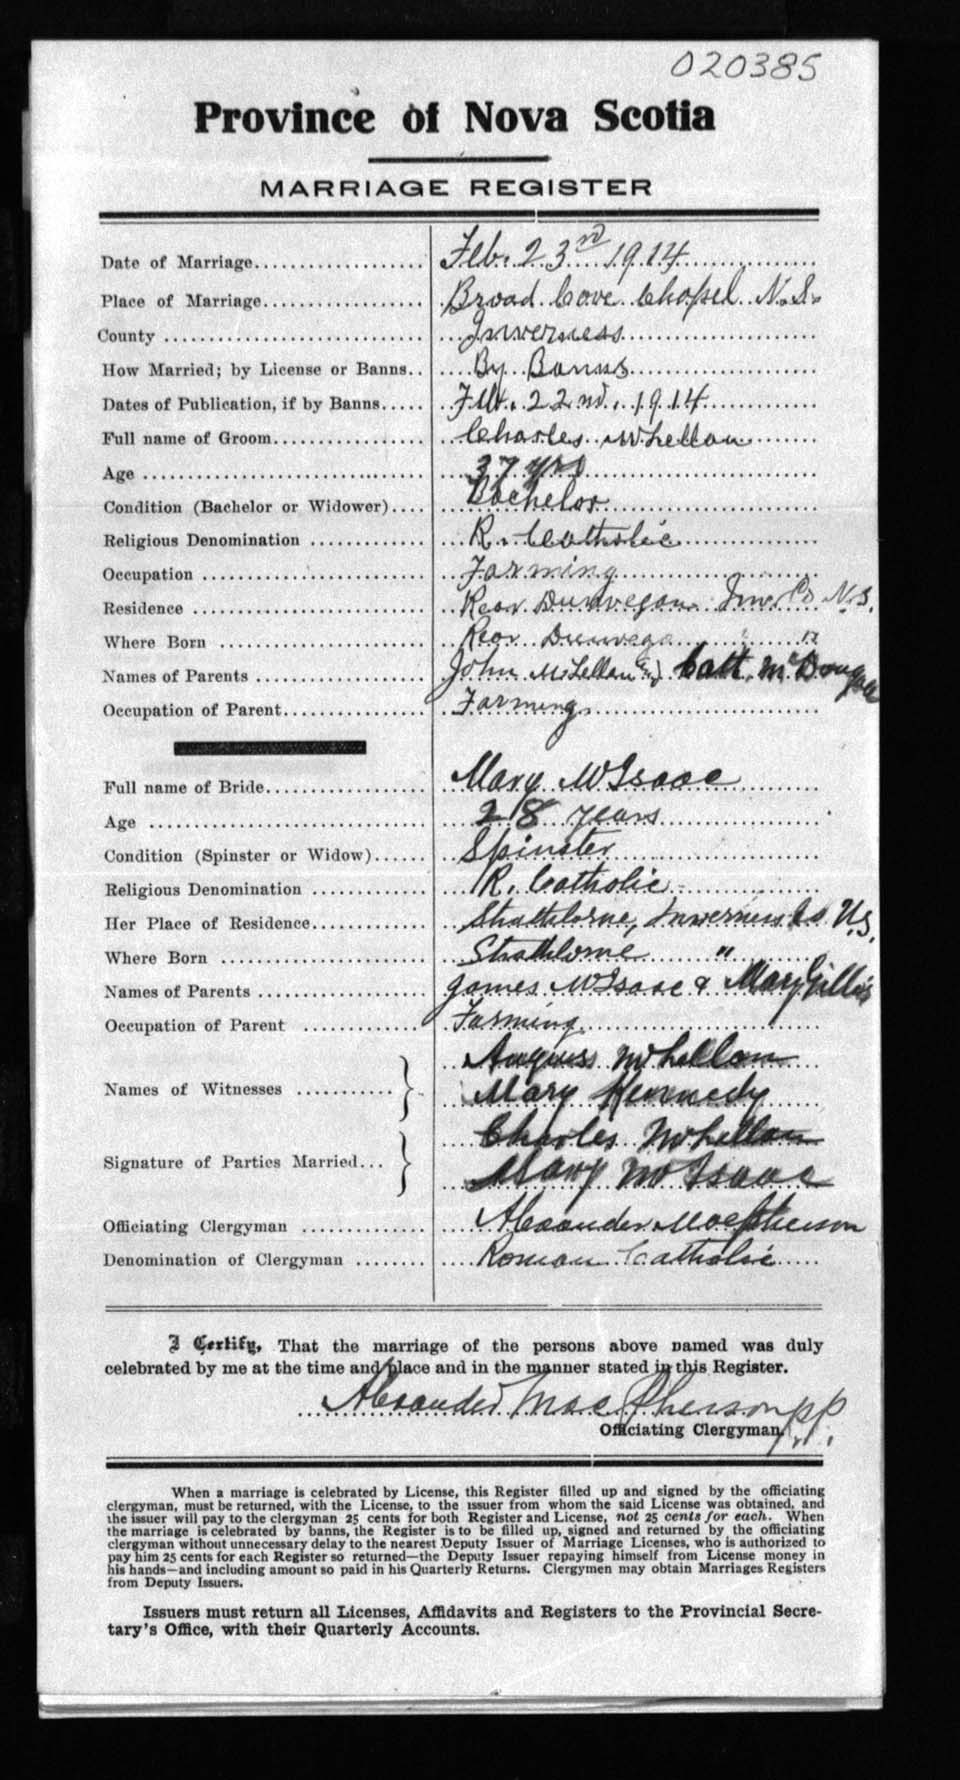 020385
Province of Nova Scotia
MARRIAGE REGISTER
Date of Marriage.................... Feb. 23rd 1914
Place of Marriage................... Broad Cove Chapel N.S.
County .............................. Inverness
How Married; by License or Banns.. By Banns
Dates of Publication, if by Banns..... Feb. 22nd. 1914
Full name of Groom.................. Charles McLellan
Age ................................. 37 yrs
Condition (Bachelor or Widower).... Bachelor
Religious Denomination ............. R. Catholic
Occupation .......................... Farming
Residence ........................... Rear Dunvegan Inv. Co N.S.
Where Born ......................... Rear Dunvega " "
Names of Parents .................... John McLellan and Cath. McDougall
Occupation of Parent................. Farming
Full name of Bride................... Mary McIsaac
Age ................................. 28 years
Condition (Spinster or Widow)...... Spinster
Religious Denomination ............. R. Catholic
Her Place of Residence.............. Strathlorne, Inverness Co N.S.
Where Born ......................... Strathlorne "
Names of Parents .................... James McIsaac & Mary Gillis
Occupation of Parent ............... Farming
Names of Witnesses ........... Anguss McLellan
Mary Kennedy
Signature of Parties Married... Charles McLellan
Mary McIsaac
Officiating Clergyman ............... Alexander MacPherson
Denomination of Clergyman ........ Roman Catholic
I Certify, That the marriage of the persons above named was duly
celebrated by me at the time and place and in the manner stated in this Register.
Alexander MacPherson pp
Officiating Clergyman.
When a marriage is celebrated by License, this Register filled up and signed by the officiating
clergyman, must be returned, with the License, to the issuer from whom the said License was obtained, and
the issuer will pay to the clergyman 25 cents for both Register and License, not 25 cents for each. When
the marriage is celebrated by banns, the Register is to be filled up, signed and returned by the officiating
clergyman without unnecessary delay to the nearest Deputy Issuer of Marriage Licenses, who is authorized to
pay him 25 cents for each Register so returned—the Deputy Issuer repaying himself from License money in
his hands—and including amount so paid in his Quarterly Returns. Clergymen may obtain Marriages Registers
from Deputy Issuers.
Issuers must return all Licenses, Affidavits and Registers to the Provincial Secre-
tary's Office, with their Quarterly Accounts.